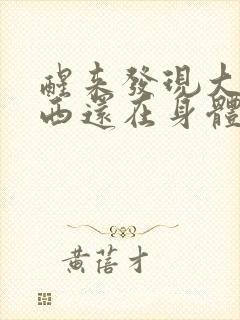 醒來發現大
西還在身體
黃蓓才